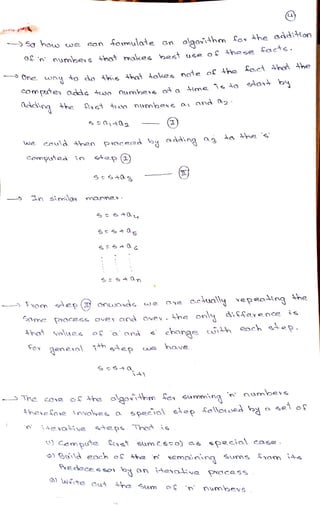 → So how we can formulate an algorithm for the addition
of 'n' numbers that makes best use of these facts.
→ One way to do this that takes note of the fact that the
computer adds two numbers at a time is to start by
adding the first two numbers a1 and a2.
s = a1+a2 — ①
we could then proceed by adding a3 to the 's'
computed in step ①
s = s+a3 —
→ In similar manner.
s = s+a4
s = s+a5
s = s+a6
s = s+an
→ From step onwards we are actually repeating the
same process over and over. the only difference is
that values of 'a' and 's' change with each step.
For general ith step we have.
s = s+a i+1
→ The core of the algorithm for summing 'n' numbers
therefore involves a special step followed by a set of
'n' iterative steps. That is
1) Compute first sum(s=0) as special case.
2) Build each of the 'n' remaining sums from its
Predecessor by an iterative process.
3) Write out the sum of 'n' numbers.